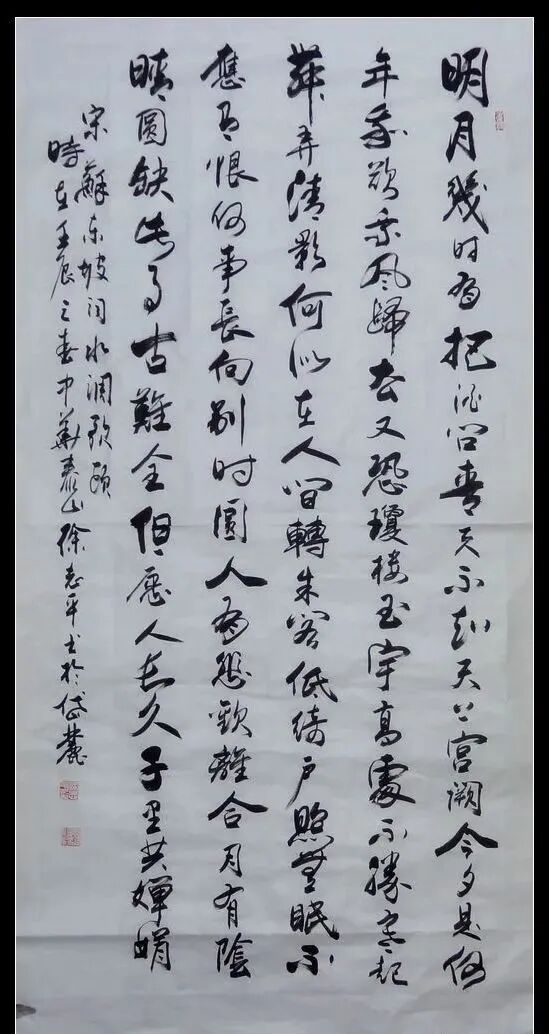 明月幾时有把酒问青天不知天上宮阙今夕是何
年我欲乘风歸去又恐瓊楼玉宇高處不勝寒起
舞弄清影何似在人间轉朱阁低绮户照無眠不
應有恨何事長向别时圓人有悲歡離合月有陰
晴圆缺此事古難全但愿人长久千里共婵娟
宋蘇东坡词水调歌頭
時在壬辰之春中華泰山徐志平书於岱麓